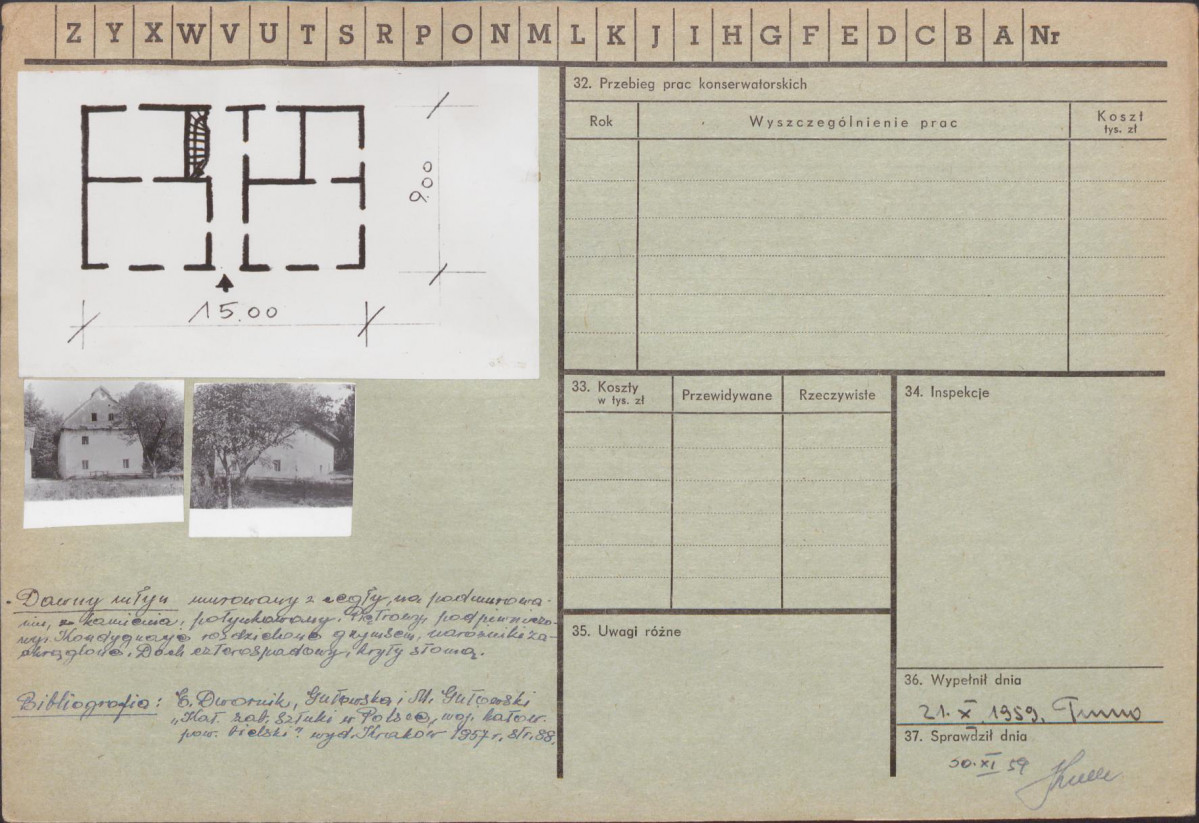 Z Y X W V U T S R P O N M L K J I H G F E D C B A Nr
9.00
15.00
Dawny młyn murowany z cegły, na podmurowa-
niu, z kamienia, potynkowany. Piętrowy, podpiwniczo-
ny. Kondygnacje rozdzielone gzymsem, narożniki za-
okrąglone. Dach czterospadowy, kryty słomą.
Bibliografia: E. Dwornik, Gutowska i M. Gutowski
„Kat. zab. sztuki w Polsce, woj. katow.
pow. bielski" wyd. Kraków 1957 r. 88.
32. Przebieg prac konserwatorskich
Rok Wyszczególnienie prac Koszt
tys. zł
33. Koszty
w tys. zł
Przewidywane Rzeczywiste
34. Inspekcje
35. Uwagi różne
36. Wypełnił dnia
21. X. 1959.
37. Sprawdził dnia
30. XI 59